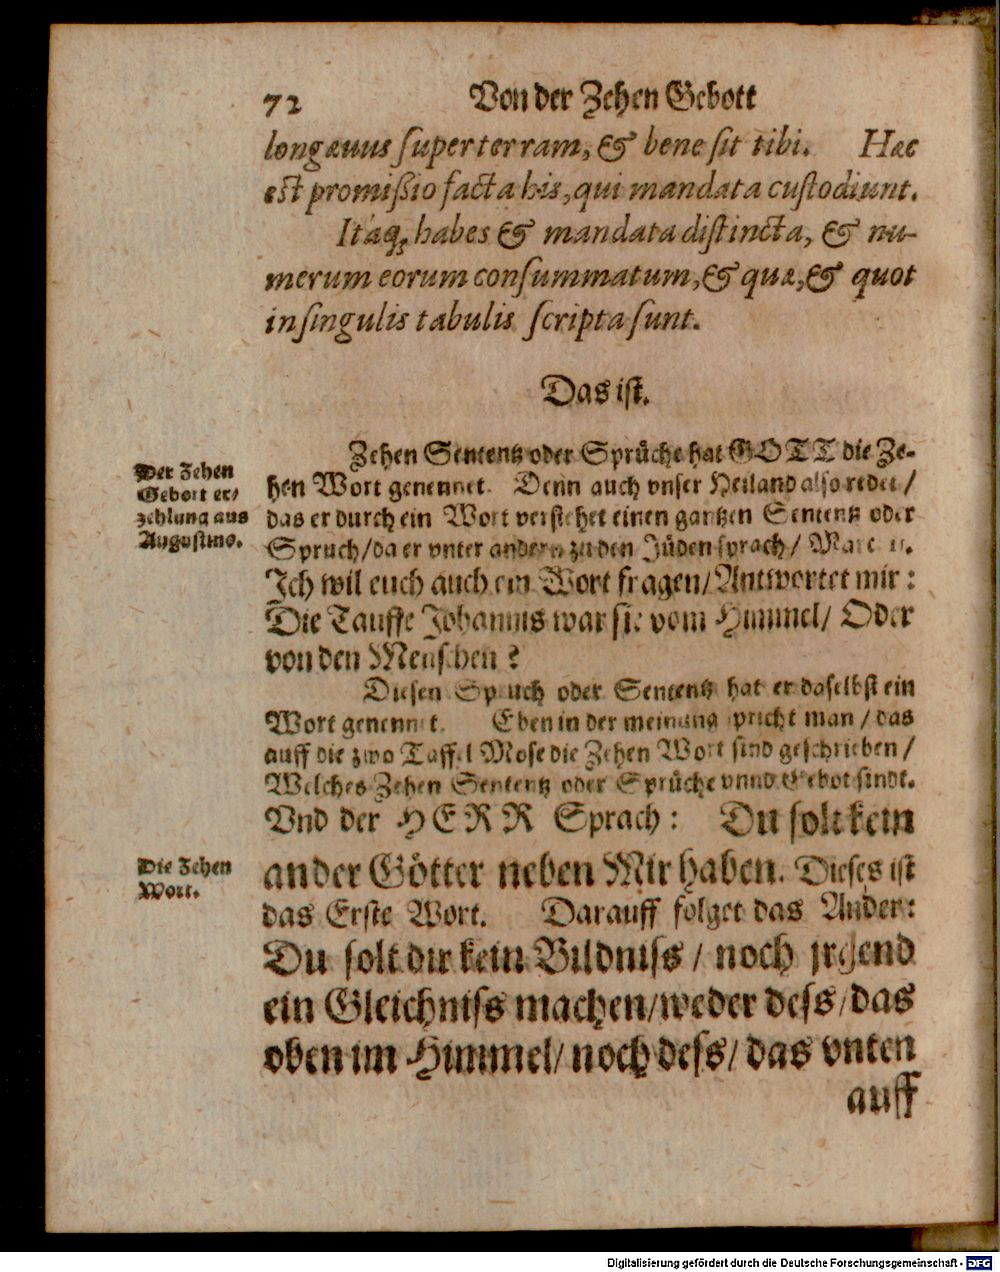 72 Von der Zehen Gebott
longævus ſuper terram, & bene ſit tibi. Hæc
est promißio facta his, qui mandata cuſtodiunt.
Itáq; habes & mandata diſtincta, & nu-
merum eorum conſummatum, & quæ, & quot
in ſingulis tabulis ſcripta ſunt.
Das iſt.
Zehen Sententz oder Sprüche hat GOTT die Ze-
hen Wort genennet. Denn auch vnſer Heiland alſo redet /
das er durch ein Wort verſtehet einen gantzen Sententz oder
Spruch / da er vnter andern zu den Jüden ſprach / Marc. 11.
Ich wil euch auch ein Wort fragen / Antwortet mir :
Die Tauffe Johannis war ſie vom Himmel / Oder
von den Menſchen ?
Dieſen Spruch oder Sententz hat er daſelbſt ein
Wort genennet. Eben in der meinung ſpricht man / das
auff die zwo Taffel Moſe die Zehen Wort ſind geſchrieben /
Welches Zehen Sententz oder Sprüche vnnd Gebot ſindt.
Vnd der HERR Sprach : Du ſolt kein
ander Götter neben Mir haben. Dieſes iſt
das Erſte Wort. Darauff folget das Ander :
Du ſolt dir kein Bildniſs / noch jrgend
ein Gleichniſs machen / weder deſs / das
oben im Himmel / noch deſs / das vnten
auff
Der Zehen
Gebott er-
zehlung aus
Auguſtino.
Die Zehen
Wort.
Digitalisierung gefördert durch die Deutsche Forschungsgemeinschaft - DFG